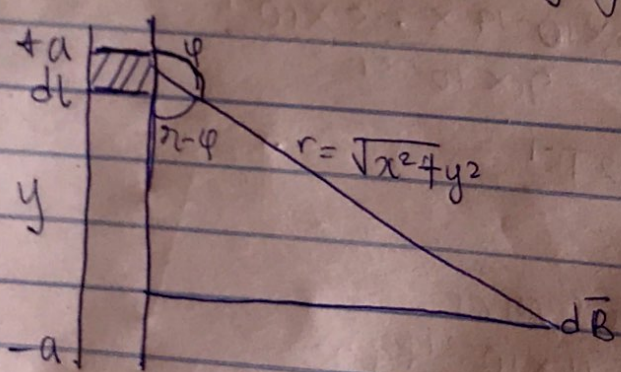 +a
φ
dl
π-φ
r = √x²+y²
y
dB̅
-a